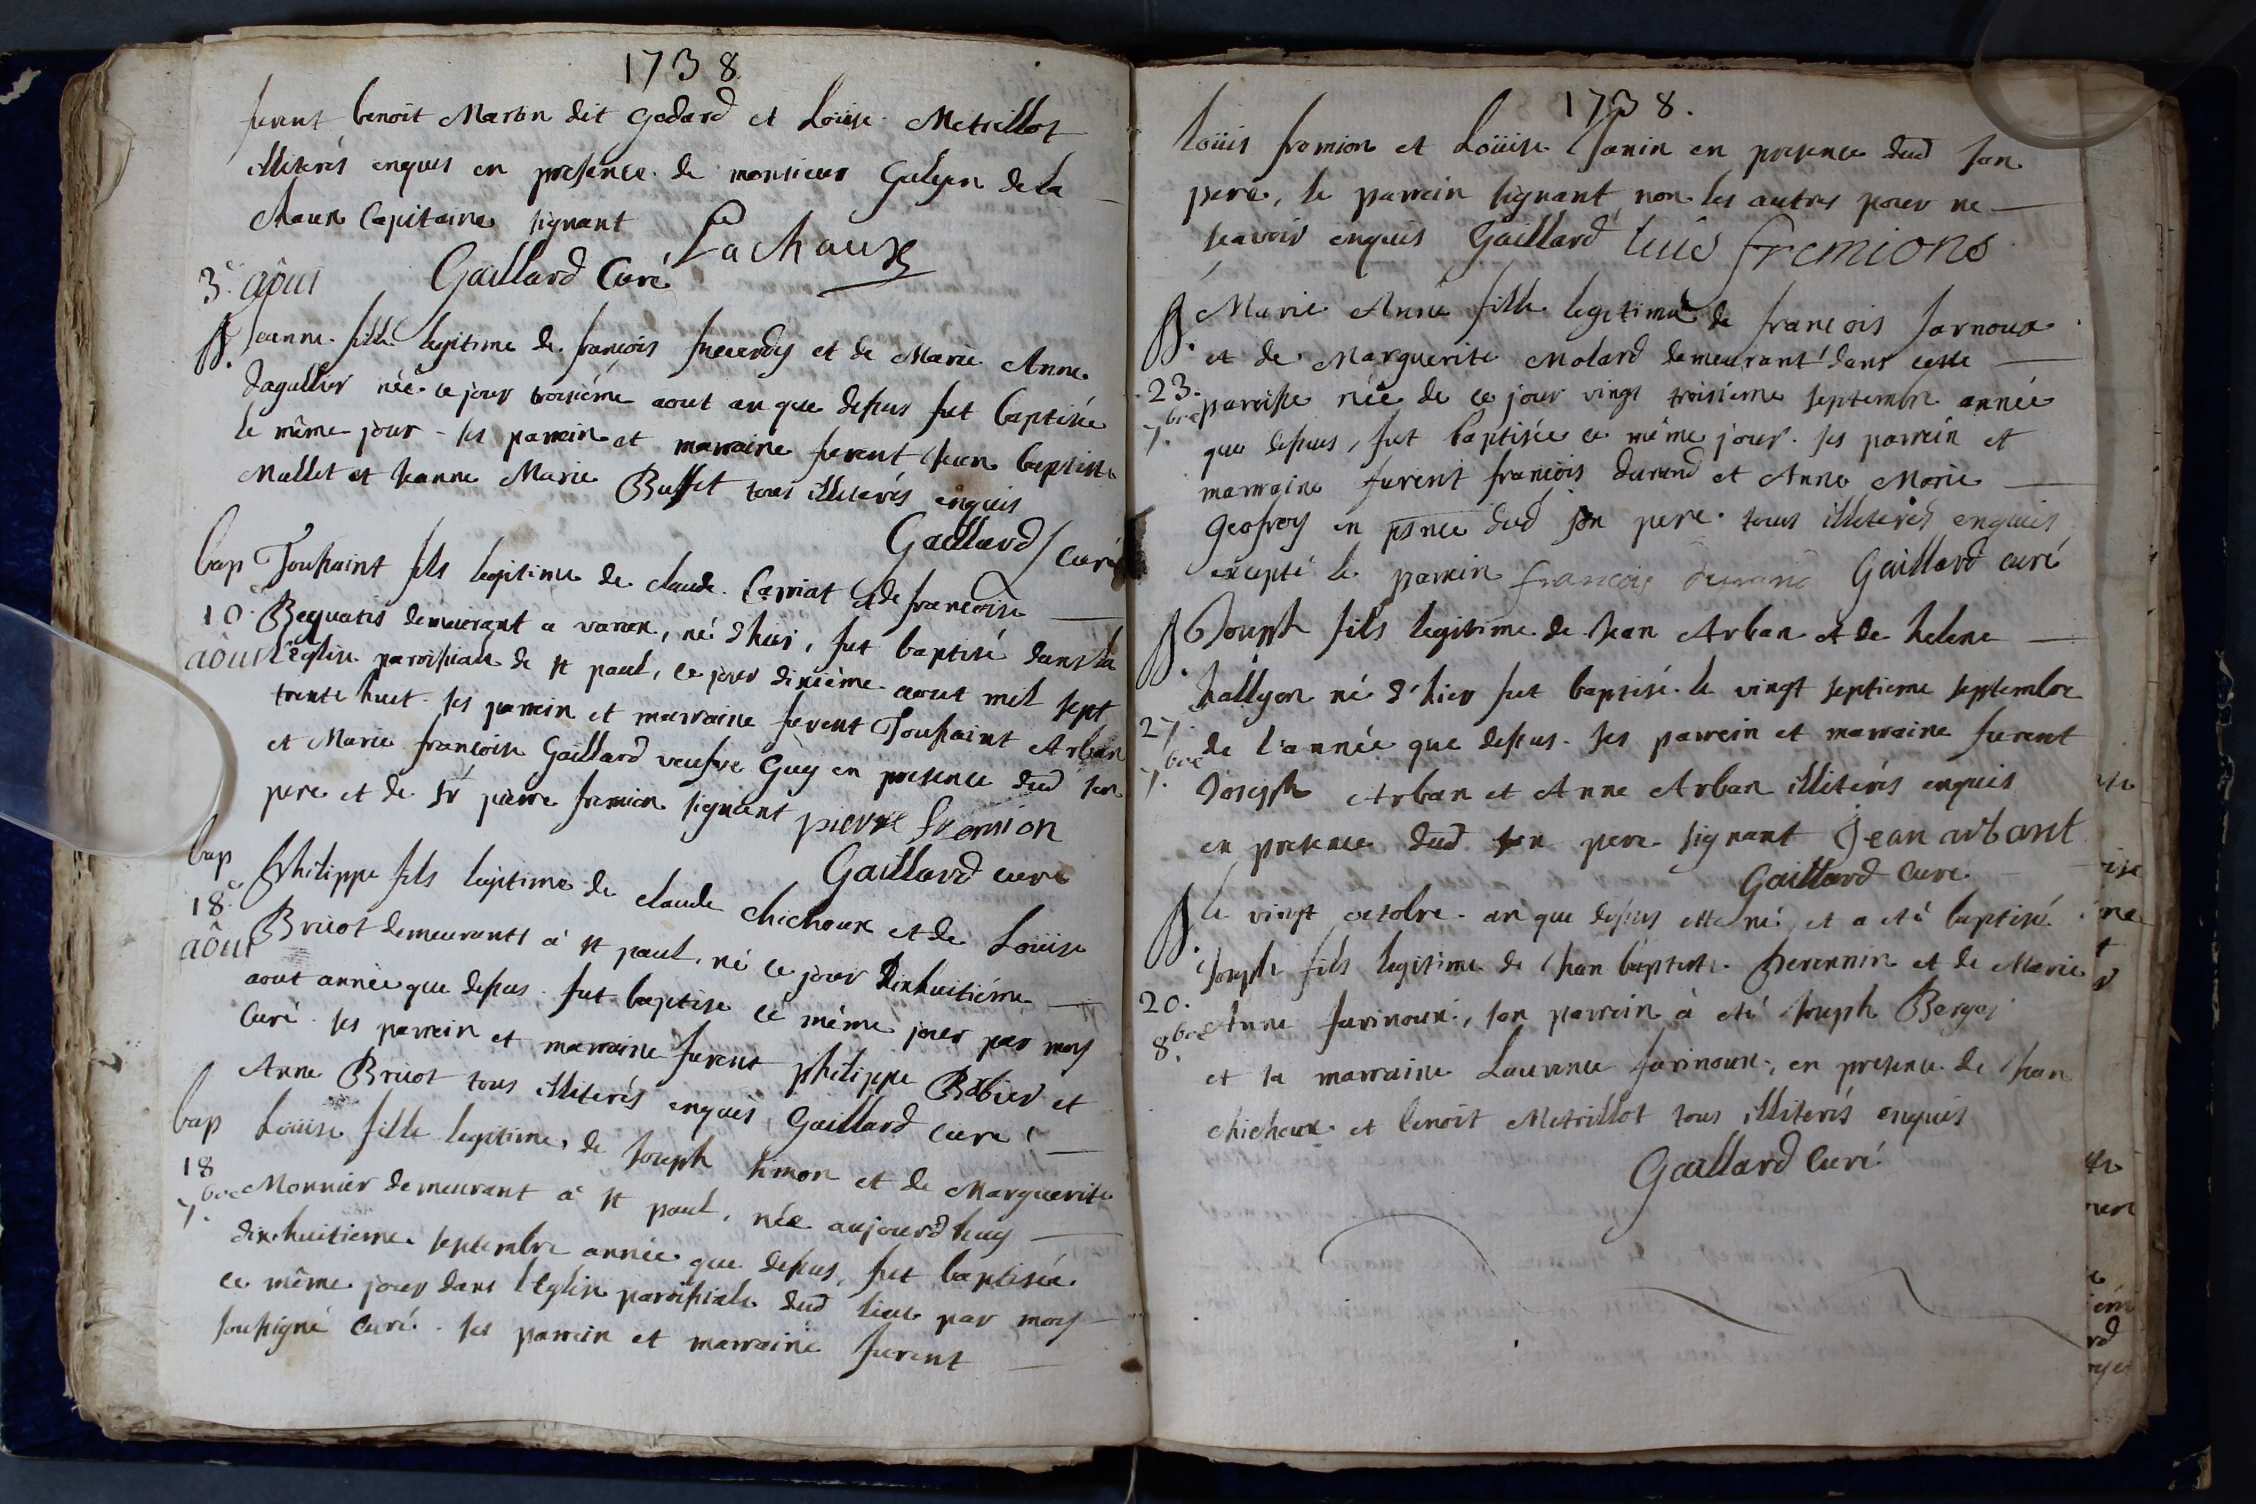 1738
furent benoit Martin dit Godard et Loüise Metrillot
illiterés enquis en presence de monsieur Galyen de la
chaux Capitaine signant LaChaux
Gaillard Curé
3e aôus
B. Jeanne fille legitime de françois et de Marie Anne
née ce jour troisiéme aout an que dessus fut baptisée
le même jour - ses parrein et marraine furent Jean baptiste
Mallet et Jeanne Marie Buffet tous illiterés enquis
Gaillard Curé
bap Toussaint fils legitime de claude Carriat et de françoise
10e Bequatis demeurant a varon, né d'hier, fut baptisé dans la
aôus l'eglise paroissiale de st paul, ce jour dixiéme aout mil sept
trente huit. ses parrein et marraine furent Toussaint Arban
et Marie françoise Gaillard veufve Guy en presence dud son
pere et de sr pierre fremion signant pierre fremion
Gaillard curé
bap Philippe fils legitime de claude chichoux et de Loüise
18e Bricot demeurants à st paul, né ce jour dixhuitiéme
aôus aout année que dessus. fut baptisé ce même jour par moy
Curé. ses parrein et marraine furent philippe Babier et
Anne Bricot tous illiterés enquis Gaillard curé
bap Loüise fille legitime de Joseph simon et de Marguerite
18 7bre Monnier demeurant à st paul, née aujourdhuy
dixhuitieme septembre année que dessus, fut baptisée
ce même jour dans l'Eglise paroissiale dud lieu par moy
soussigné Curé. ses parrein et marraine furent
1738.
Loüis fremion et Loüise Janin en presence dud son
pere, le parrein signant, non les autres pour ne
scavoir enquis Gaillard luis fremions
B. Marie Anne fille legitime de françois Jarnoux
et de Marguerite Molard demeurant dans cette
23. 7bre paroisse née de ce jour vingt troisiéme septembre année
que dessus, fut baptisée ce même jour. ses parrein et
marraine furent françois durand et Anne Marie
Geofroy en psnce dud son pere. tous illiterés enquis
excepté le parrein francois durand Gaillard curé
B. Joseph fils legitime de Jean Arban et de helene
hallyon né d'hier fut baptisé le vingt septieme septembre
27. 7bre de l'année que dessus. ses parrein et marraine furent
Joseph Arban et Anne Arban illiterés enquis
en presence dud son pere signant Jean arbant
Gaillard curé
B. le vingt octobre an que dessus est né et a eté baptisé
Joseph fils legitime de Jean baptiste Perennin et de Marie
20. 8bre Anne farinoux, son parrein à eté Joseph Berger
et sa marraine Laurence farinoux, en presence de Jean
chichoux et benoit Metrillot tous illiterés enquis
Gaillard Curé